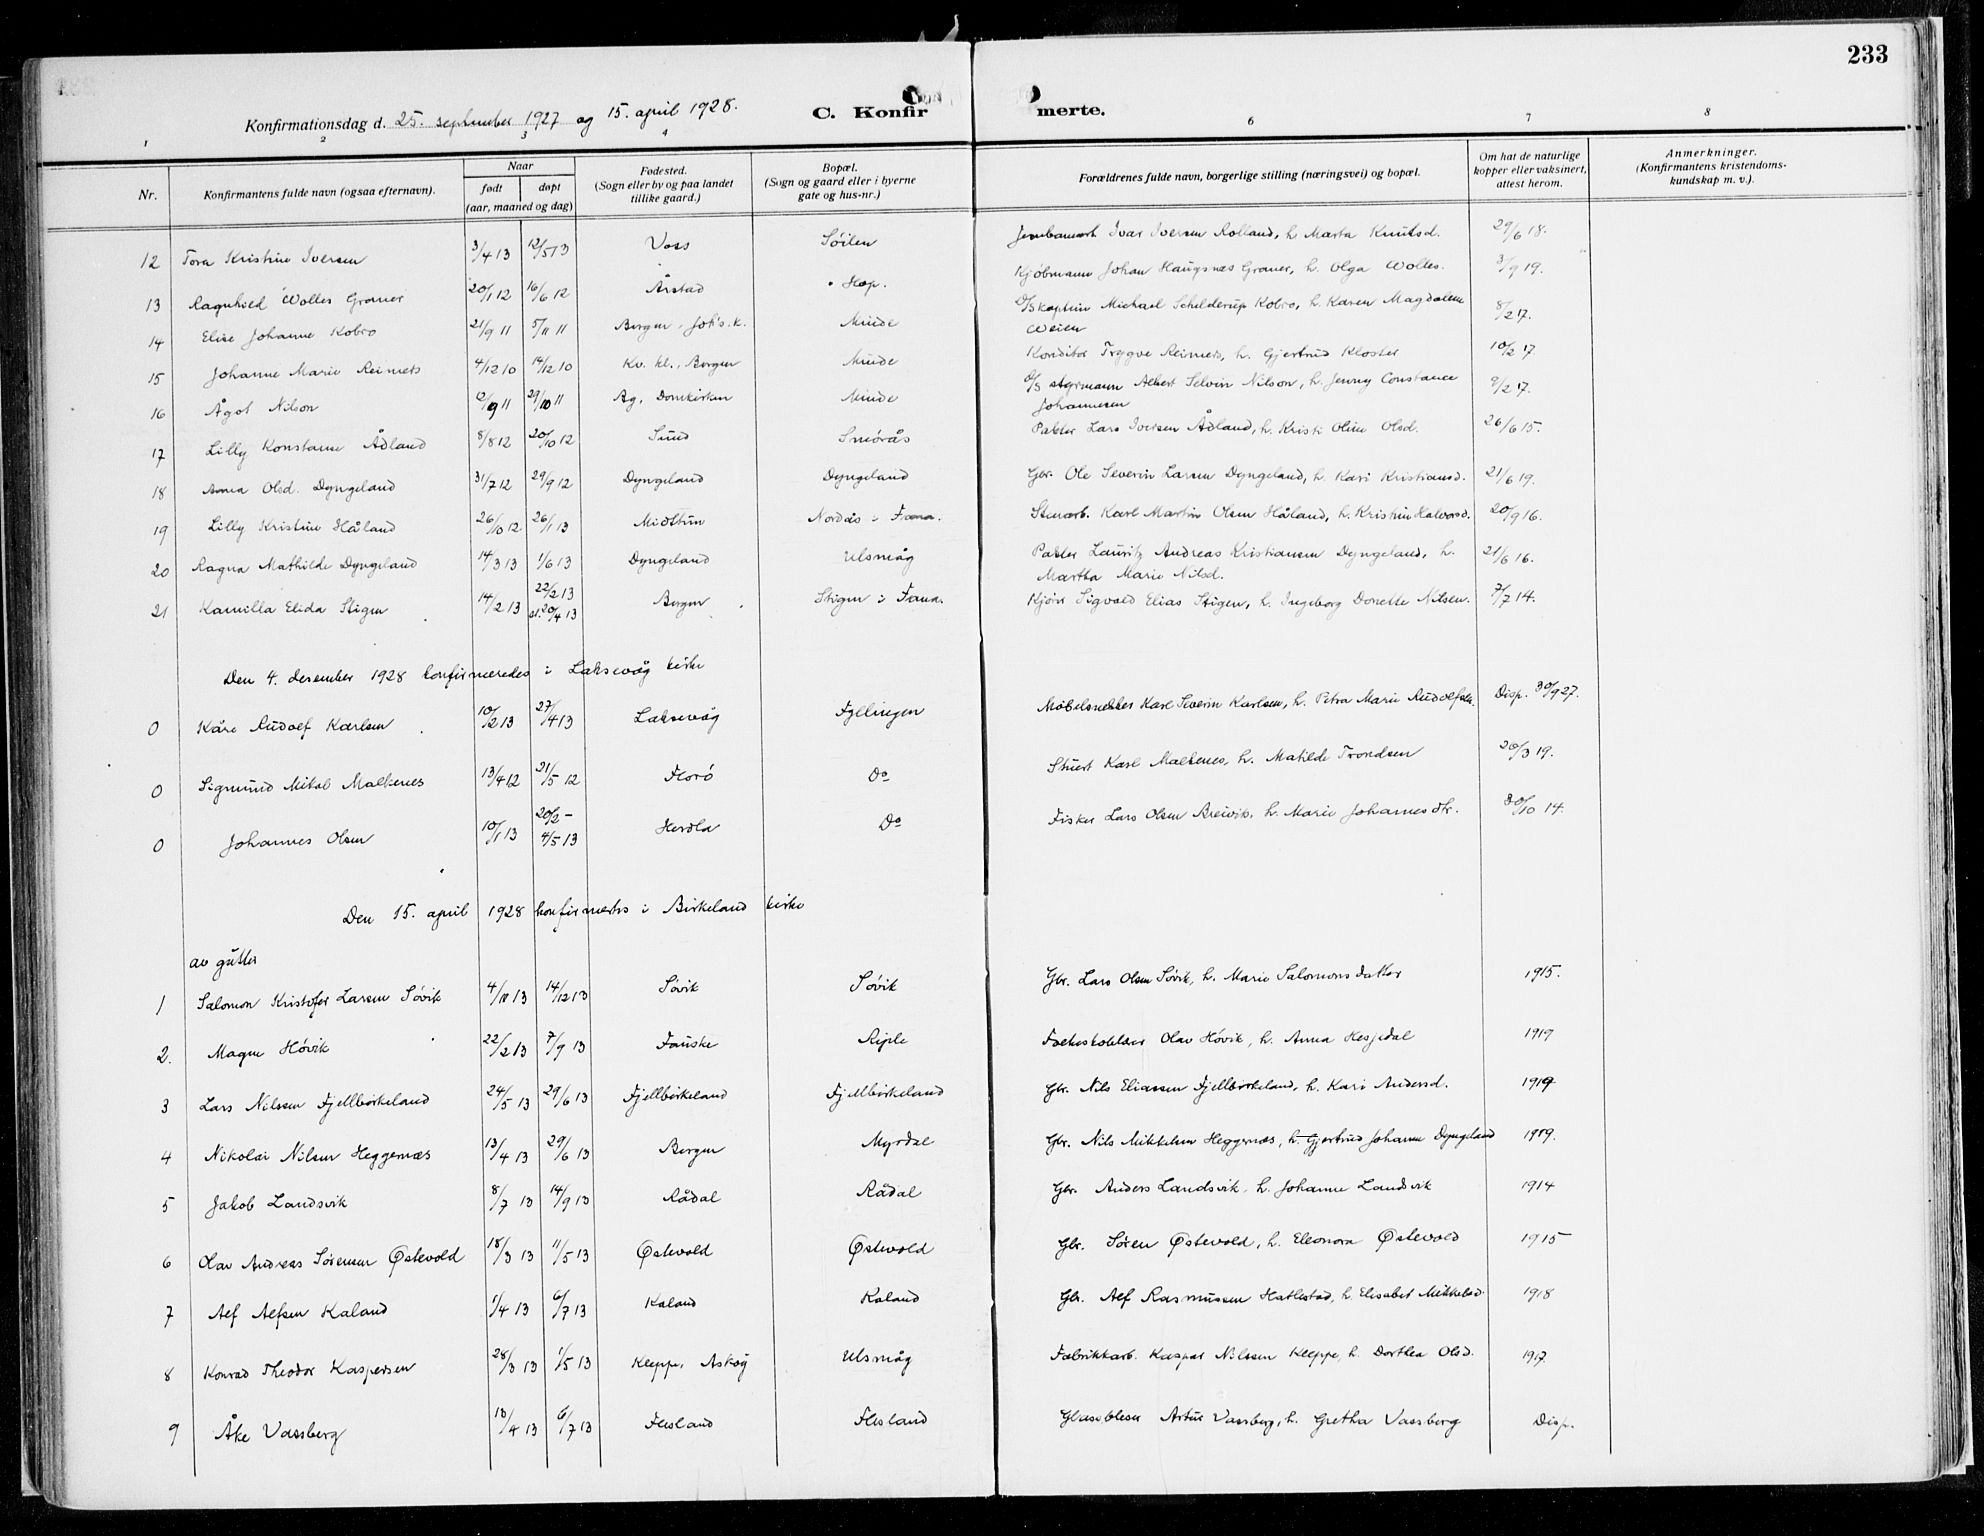 233
Konfirmationsdag d. 25. september 1927 og 15. april 1928. C. Konfir merte.
1 2 3 4 6 7 8
Nr. Konfirmantens fulde navn (ogsaa efternavn). Naar født døpt (aar, maaned og dag) Fødested. (Sogn eller by og paa landet tillike gaard.) Bopæl. (Sogn og gaard eller i byerne gate og hus-nr.) Forældrenes fulde navn, borgerlige stilling (næringsvei) og bopæl. Om hat de naturlige kopper eller vaksinert, attest herom. Anmerkninger. (Konfirmantens kristendoms-kundskap m. v.).
12 Tora Kristine Iversen 3/4 13 12/5 13 Voss Søilen Ivar Iversen Rolland, h. Marta Knutsd. 29/6 18.
13 Ragnhild Wolles Graner 20/1 12 16/6 12 Årstad Hop. Kjøbmann Johan Haugsnes Graner, h. Olga Wolles. 3/9 19.
14 Elise Johanne Kobro 21/9 11 5/11 11 Bergen, Joh's. k. Minde D/S kaptein Michael Schilderup Kobro, h. Karen Magdalene Weien 8/2 17.
15 Johanne Marie Reimers 4/12 10 14/12 10 Kv. kl., Bergen Minde Konditor Trygve Reimers, h. Gjertrud Kloster 10/2 17
16 Ågot Nilson 12/9 11 29/10 11 Ag. Domkirken Minde D/S styrmann Albert Selvin Nilson, h. Jenny Constance Johannesen 9/2 17.
17 Lilly Konstanse Ådland 8/8 12 20/10 12 Sund Smørås Pakker Lars Iversen Ådland, h. Kristi Oline Olsd. 26/6 15.
18 Anna Olsd. Dyngeland 31/7 12 29/9 12 Dyngeland Dyngeland Gbr. Ole Severin Larsen Dyngeland, h. Kari Kristiansd. 21/6 19.
19 Lilly Kristine Håland 26/10 12 26/1 13 Midttun Nordås i Fana. Stenarb. Karl Martin Olsen Håland, h. Kristine Halvorsd. 20/9 16.
20 Ragna Mathilde Dyngeland 14/3 13 1/6 13 Dyngeland Ulsmåg Pakker Lauritz Andreas Kristiansen Dyngeland, h. Martha Marie Nilsd. 21/6 16.
21 Kamilla Elida Stigen 14/2 13 22/2 13 st. 20/4 13 Bergen Stigen i Fana. Kjører Sigvald Elias Stigen, h. Ingeborg Donette Nilsen. 7/7 14.
Den 4. desember 1928 konfirmeredes i Laksevåg kirke
0 Kåre Rudolf Karlsen 10/2 13 27/4 13 Laksevåg Fyllingen Møbelsnekker Karl Severin Karlsen, h. Petra Marie Rudolfsen. Disp. 30/9 27.
0 Sigmund Mikal Malkenes 13/4 12 21/5 12 Florø Do Stuert Karl Malkenes, h. Matilde Trondsen 20/3 19.
0 Johannes Olsen 10/1 13 20/2 - 4/5 13 Herdla Do Fisker Lars Olsen Breivik, h. Marie Johannesdtr. 30/10 14.
Den 15. april 1928 konfirmertes i Birkeland kirke
av gutter
1 Salomon Kristofer Larsen Søvik 4/11 13 14/12 13 Søvik Søvik Gbr. Lars Olsen Søvik, h. Marie Salomonsdatter 1915.
2. Magne Høvik 22/2 13 7/9 13 Fauske Riple Folkeskolelærer Olav Høvik, h. Anna Hesjedal 1919
3 Lars Nilssen Fjellbirkeland 24/5 13 29/6 13 Fjellbirkeland Fjellbirkeland Gbr. Nils Eliassen Fjellbirkeland, h. Kari Andersd. 1919
4 Nikolai Nilsen Heggernæs 13/4 13 29/6 13 Bergen Myrdal Gbr. Nils Mikkelsen Heggernæs, h. Gjertrud Johanne Dyngeland 1919.
5 Jakob Landsvik 8/7 13 14/9 13 Rådal Rådal Gbr. Anders Landsvik, h. Johanne Landsvik 1914
6 Olav Andreas Sørensen Østevold 18/3 13 11/5 13 Østevold Østevold Gbr. Søren Østevold, h. Eleonora Østevold 1915
7 Alf Alfsen Kaland 1/4 13 6/7 13 Kaland Kaland Gbr. Alf Rasmussen Hatlestad, h. Elisabet Mikkelsd. 1918
8 Konrad Theodor Kaspersen 28/3 13 1/5 13 Kleppe, Askøy Ulsmåg Fabrikkarb. Kaspar Nilssen Kleppe, h. Dorthea Olsd. 1917.
9 Åke Vassberg 13/4 13 6/7 13 Flesland Flesland Glassbleser Artur Vassberg, h. Gretha Vassberg Disp.